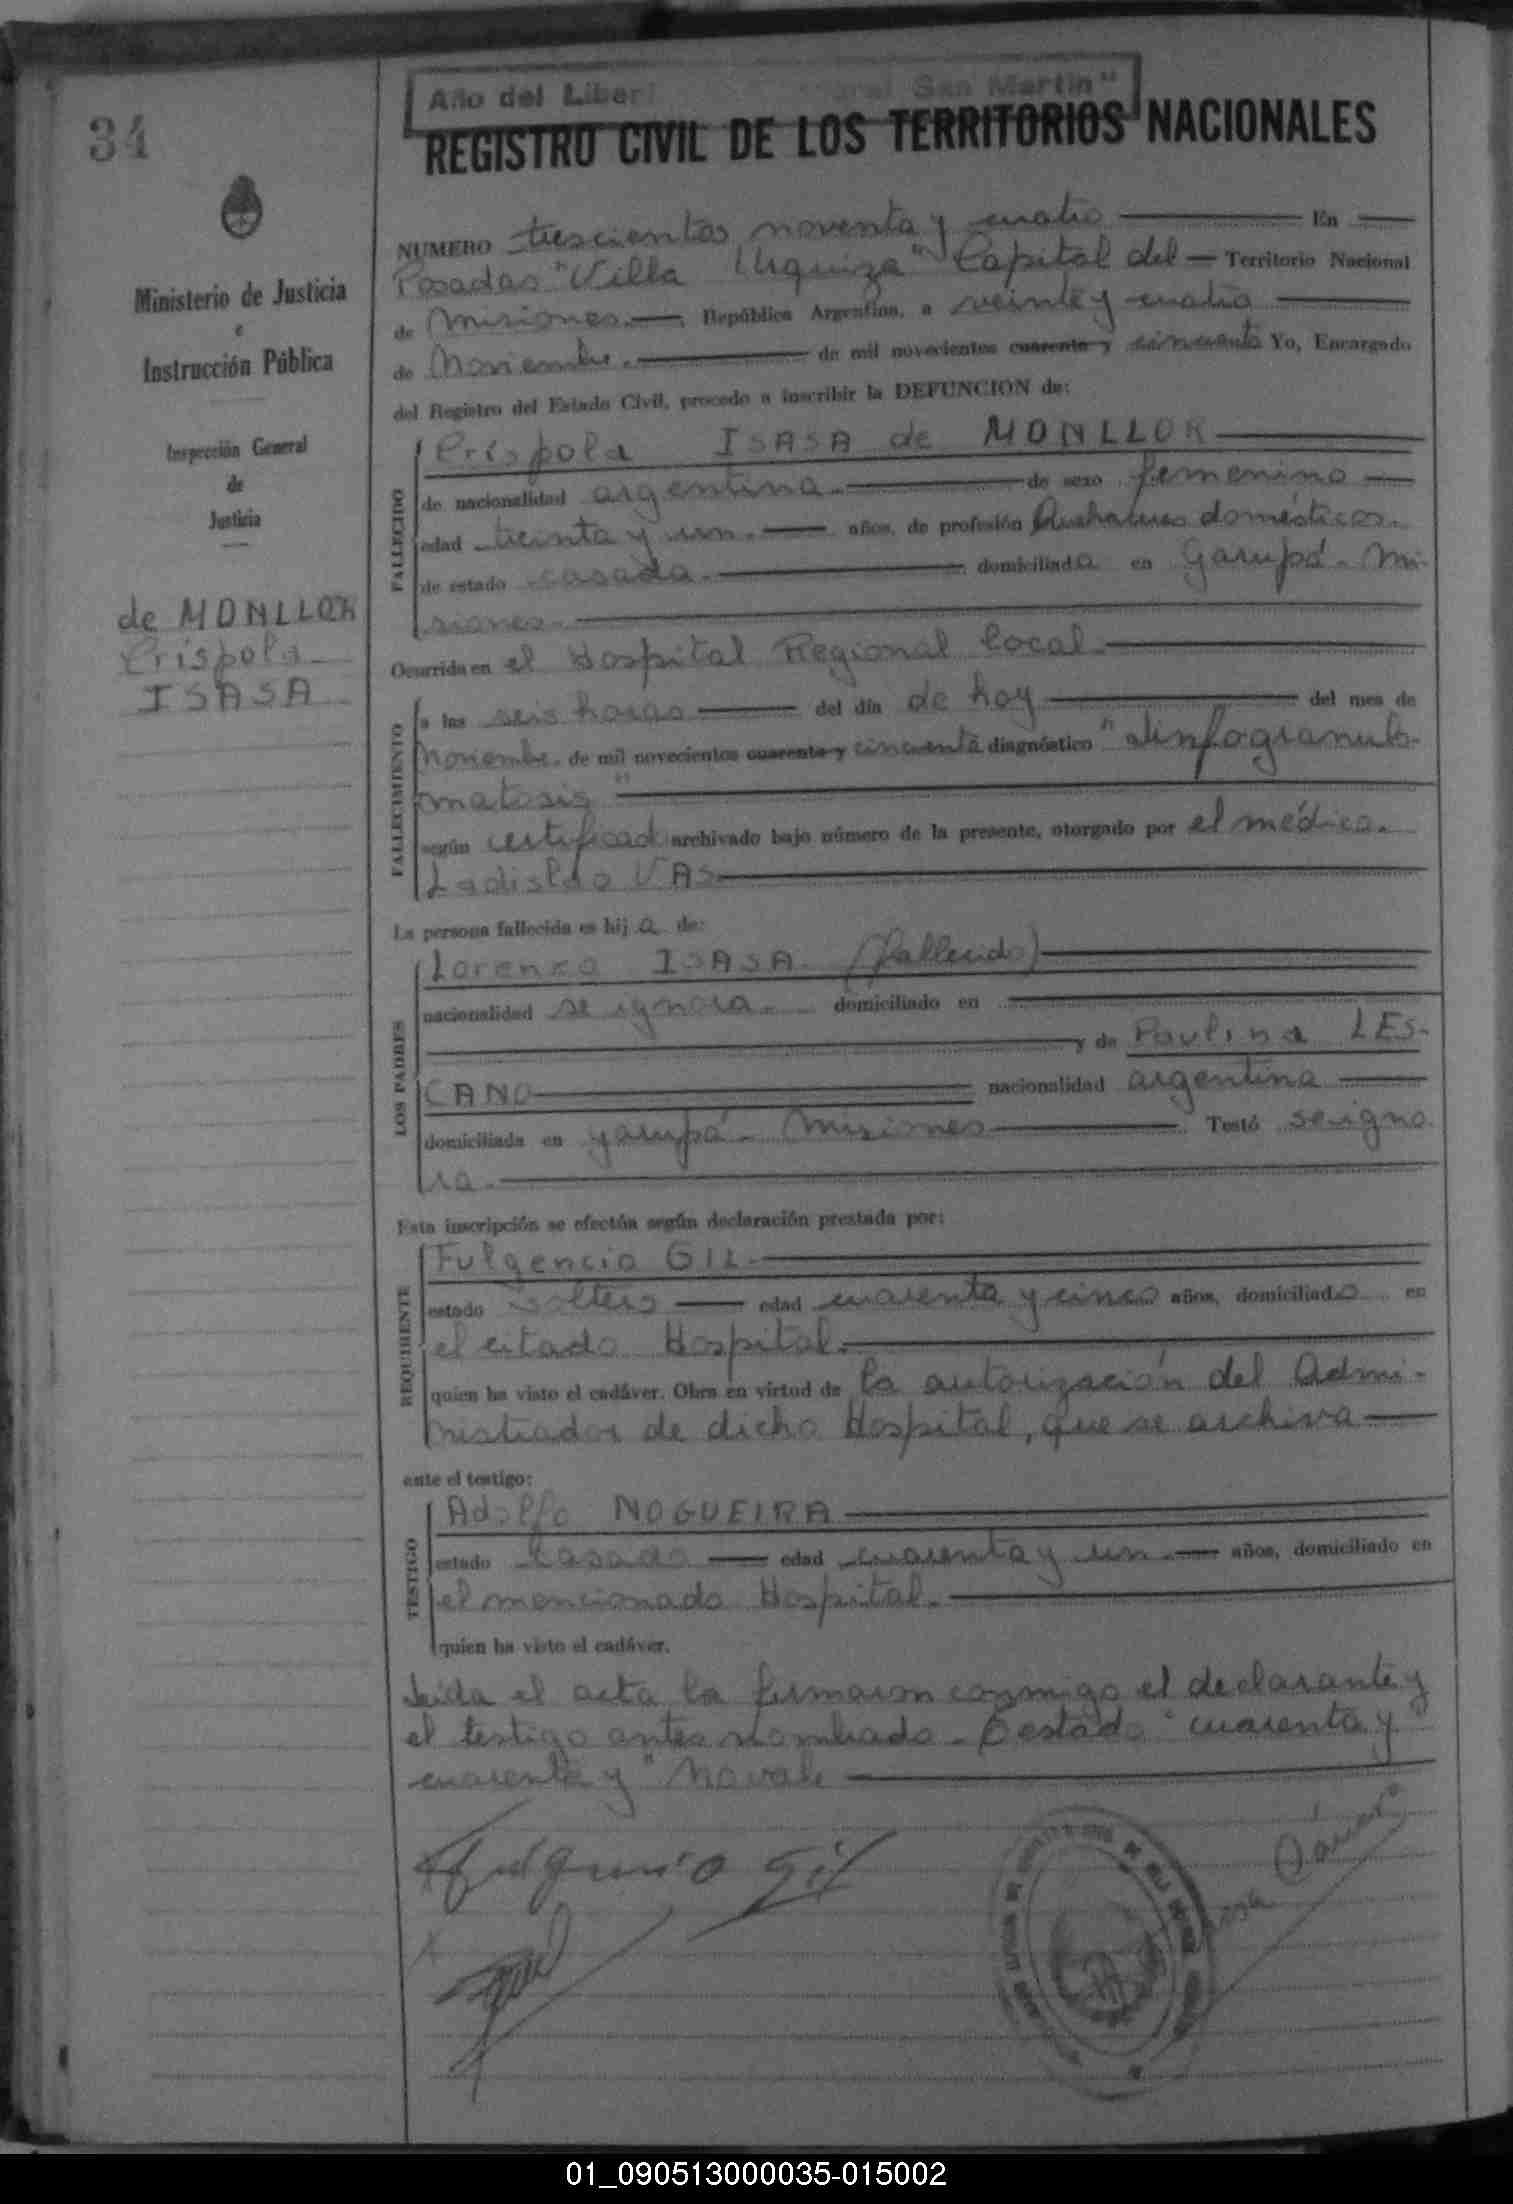 Año del Liber San Martin"
34
REGISTRO CIVIL DE LOS TERRITORIOS NACIONALES
NUMERO trescientos noventa y cuatro En
Posadas "Villa Urquiza" Capital del Territorio Nacional
de Misiones. República Argentina, a veinte y cuatro
de Noviembre. de mil novecientos cuarenta y cincuenta Yo, Encargado
del Registro del Estado Civil, procedo a inscribir la DEFUNCION de:
Ministerio de Justicia
e
Instrucción Pública
Inspección General
de
Justicia
de MONLLOR
Críspola
ISASA
FALLECIDO
Críspola ISASA de MONLLOR
de nacionalidad argentina. de sexo femenino
edad treinta y un. años, de profesión Quehaceres domésticos.
de estado casada. domiciliada en Garupá - Mi-
siones.
Ocurrida en el Hospital Regional local.
FALLECIMIENTO
a las seis horas del día de hoy del mes de
Noviembre. de mil novecientos cuarenta y cincuenta diagnóstico "Linfogranulo-
matosis"
según certificad archivado bajo número de la presente, otorgado por el médico.
Ladislao VAS.
La persona fallecida es hija de:
LOS PADRES
Lorenzo ISASA. (fallecido)
nacionalidad se ignora. domiciliado en
y de Paulina LES-
CANO nacionalidad argentina
domiciliada en garupá - Misiones Testó se igno
ra.
Esta inscripción se efectúa según declaración prestada por:
REQUIRENTE
Fulgencio GIL.
estado soltero edad cuarenta y cinco años, domiciliado en
el citado Hospital.
quien ha visto el cadáver. Obra en virtud de la autorización del Admi-
nistrador de dicho Hospital, que se archiva
ante el testigo:
TESTIGO
Adolfo NOGUEIRA
estado casado edad cuarenta y un. años, domiciliado en
el mencionado Hospital.
quien ha visto el cadáver.
Leida el acta la firmaron conmigo el declarante y
el testigo antes nombrado. Testado "cuarenta y"
cuarenta y" No vale
Fulgencio Gil
01_090513000035-015002